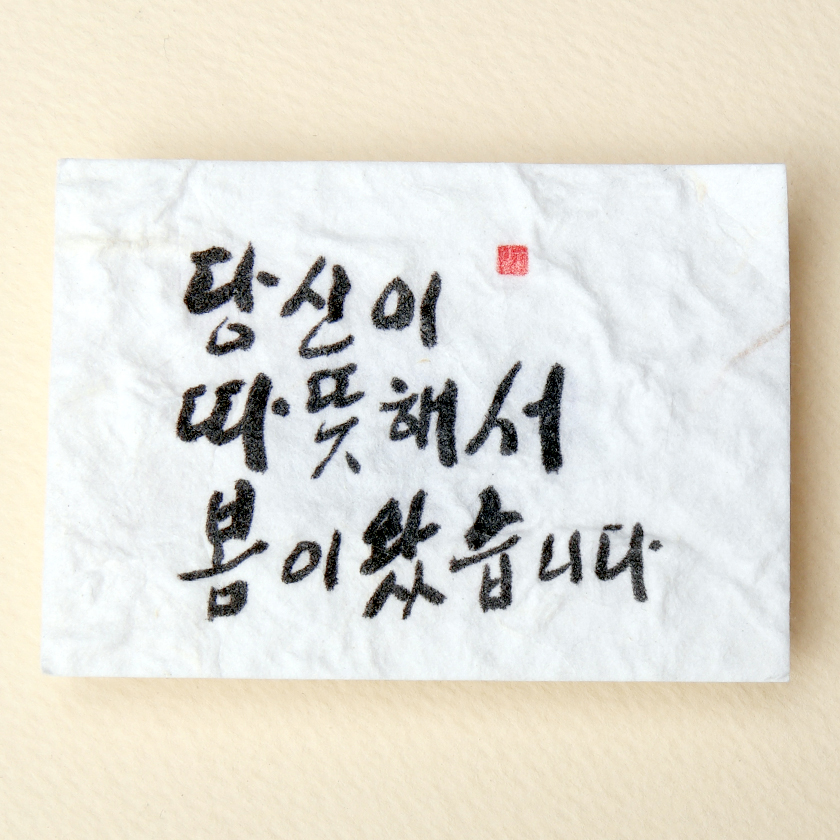 당신이
따뜻해서
봄이왔습니다